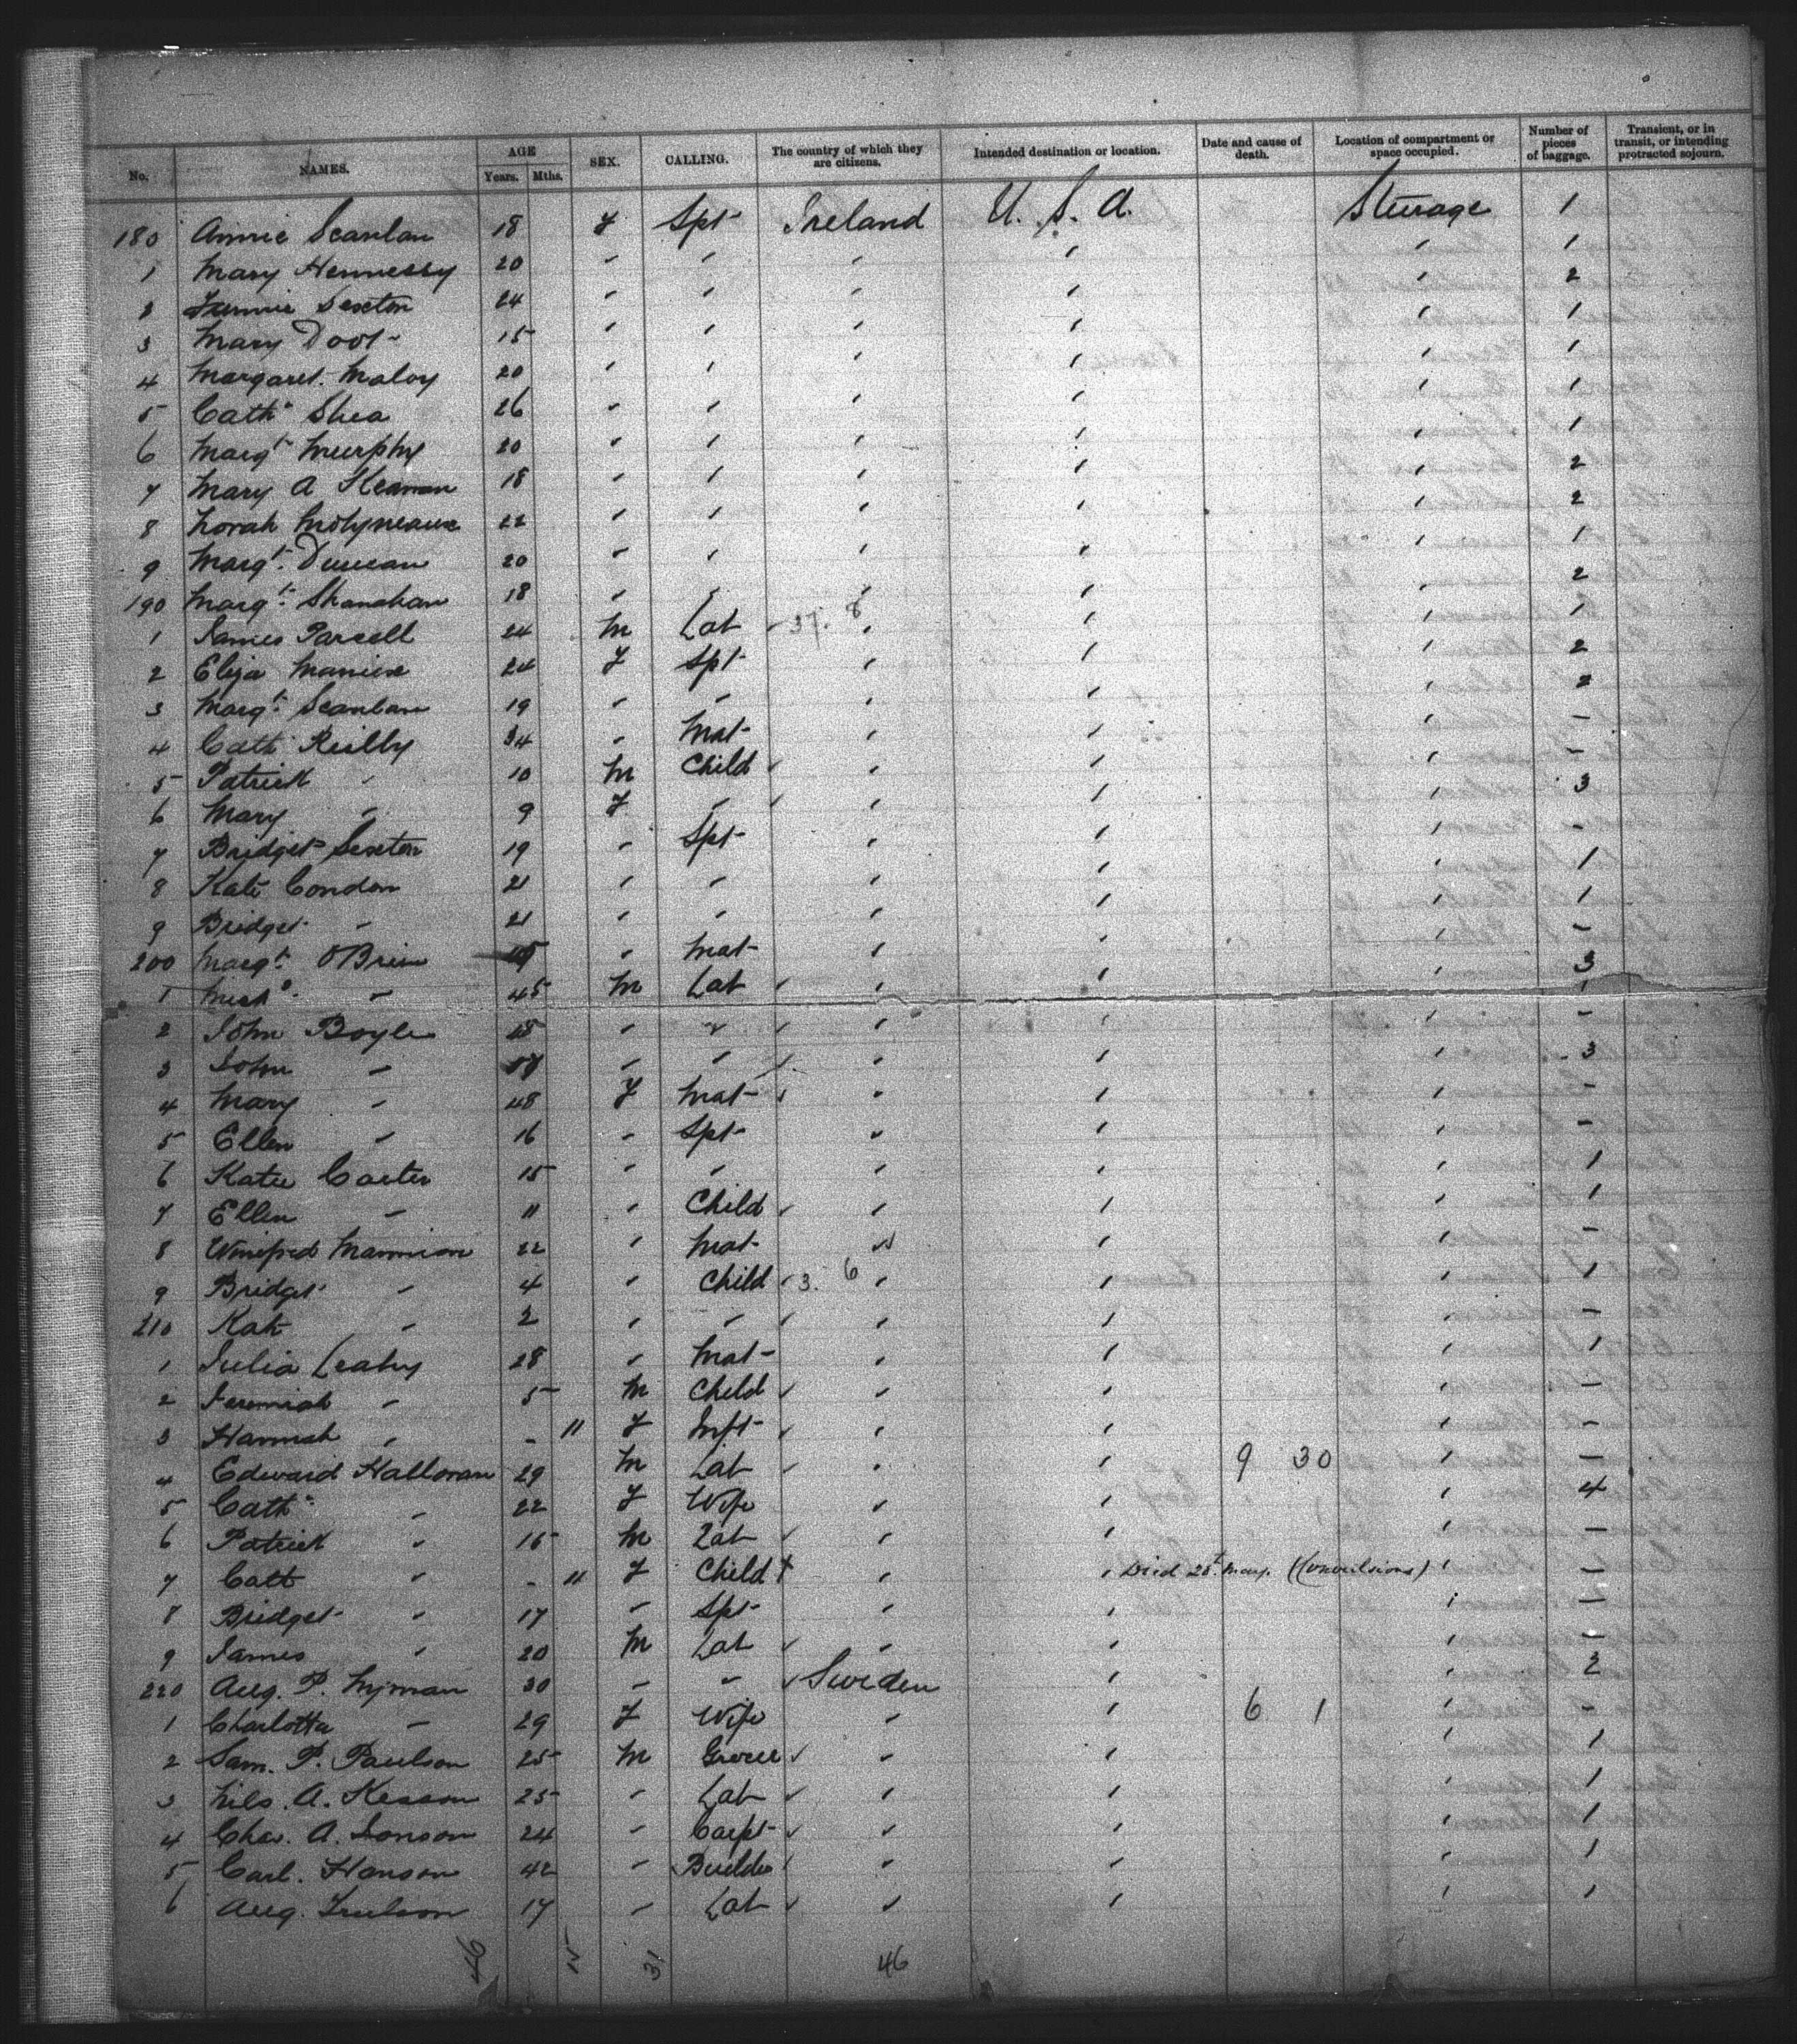 No. NAMES. AGE Years. Mths. SEX. CALLING. The country of which they are citizens. Intended destination or location. Date and cause of death. Location of compartment or space occupied. Number of pieces of baggage. Transient, or in transit, or intending protracted sojourn.
180 Annie Scanlan 18 F Spt Ireland U. S. A. Steerage 1
1 Mary Hennessy 20 " " " " " 1
2 Sexton 24 " " " " " 2
3 Mary 15 " " " " " 1
4 Margaret Maloy 20 " " " " " 1
5 Cath Shea 26 " " " " " 1
6 Margt Murphy 20 " " " " " 1
7 Mary A 18 " " " " " 2
8 Norah Molyneaux 22 " " " " " 2
9 Margt Duncan 20 " " " " " 1
190 Margt Shanahan 18 " " " " " 2
1 James Parcell 24 M Lab 37. 8 " " " 1
2 Eliza 24 F Spt " " " 2
3 Margt Scanlan 19 " " " " " 2
4 Cath Reilly 34 " Mat " " " -
5 Patrick " 10 M Child " " " -
6 Mary " 9 F " " " " 3
7 Bridget Sexton 19 " Spt " " " -
8 Kate Condon 21 " " " " " 1
9 Bridget " 21 " " " " " 1
200 Margt OBrien " Mat " " " -
1 Mich " 45 M Lab " " " 3
2 John Boyle " " " " " -
3 John " " " " " " 3
4 Mary " 48 F Mat " " " -
5 Ellen " 16 " Spt " " " -
6 Katie Carter 15 " " " " " 1
7 Ellen " 11 " Child " " " 1
8 Winifred Mannion 22 " Mat " " " -
9 Bridget " 4 " Child 3. 6 " " " 1
210 Kate " 2 " " " " " -
1 Julia Leahy 28 " Mat " " " 1
2 Jeremiah " 5 M Child " " " -
3 Hannah " - 11 F Inft " " " -
4 Edward Halloran 29 M Lab " " 9 30 " -
5 Cath " 22 F Wife " " " 4
6 Patrick " 15 M Lab " " " -
7 Cath " - 11 F Child " " Died 25t May. (Convulsions) " -
8 Bridget " 17 " Spt " " " -
9 James " 20 M Lab " " " -
220 Aug. P. Nyman 30 " " Sweden " " 2
1 Charlotta " 29 F Wife " " 6 1 " -
2 Sam. P. Paulson 25 M Grocer " " " 1
3 Nils. A. Kesson 25 " Lab " " " 1
4 Chas. A. Jonson 24 " Carpt " " " 1
5 Carl. Hanson 42 " Builder " " " 1
6 Aug. 17 " Lab " " " 1
46 15 31 46